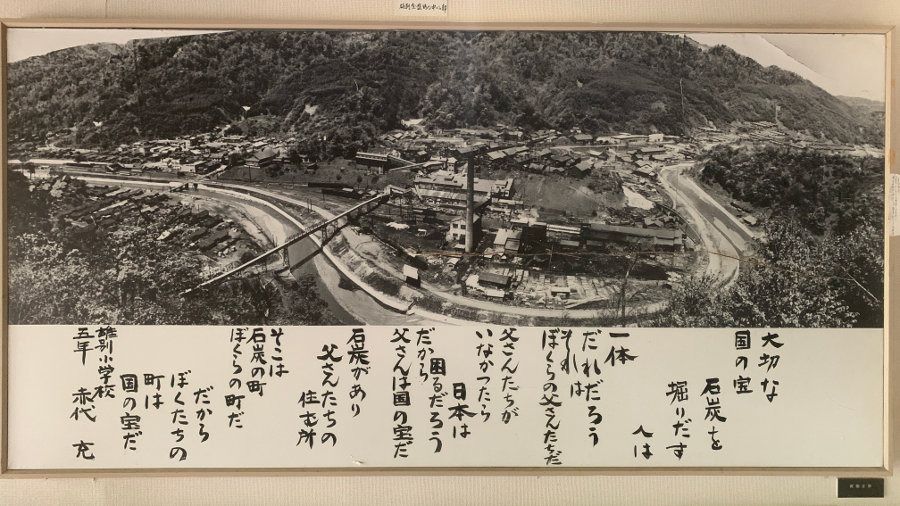 大切な
国の宝
石炭を
堀りだす
人は
一体
だれだろう
それは
ぼくらの父さんたちだ
父さんたちが
いなかつたら
日本は
困るだろう
だから
父さんは国の宝だ
石炭があり
父さんたちの
住む所
そこは
石炭の町
ぼくらの町だ
だから
ぼくたちの
町は
国の宝だ
雄別小学校
五年 赤代 充